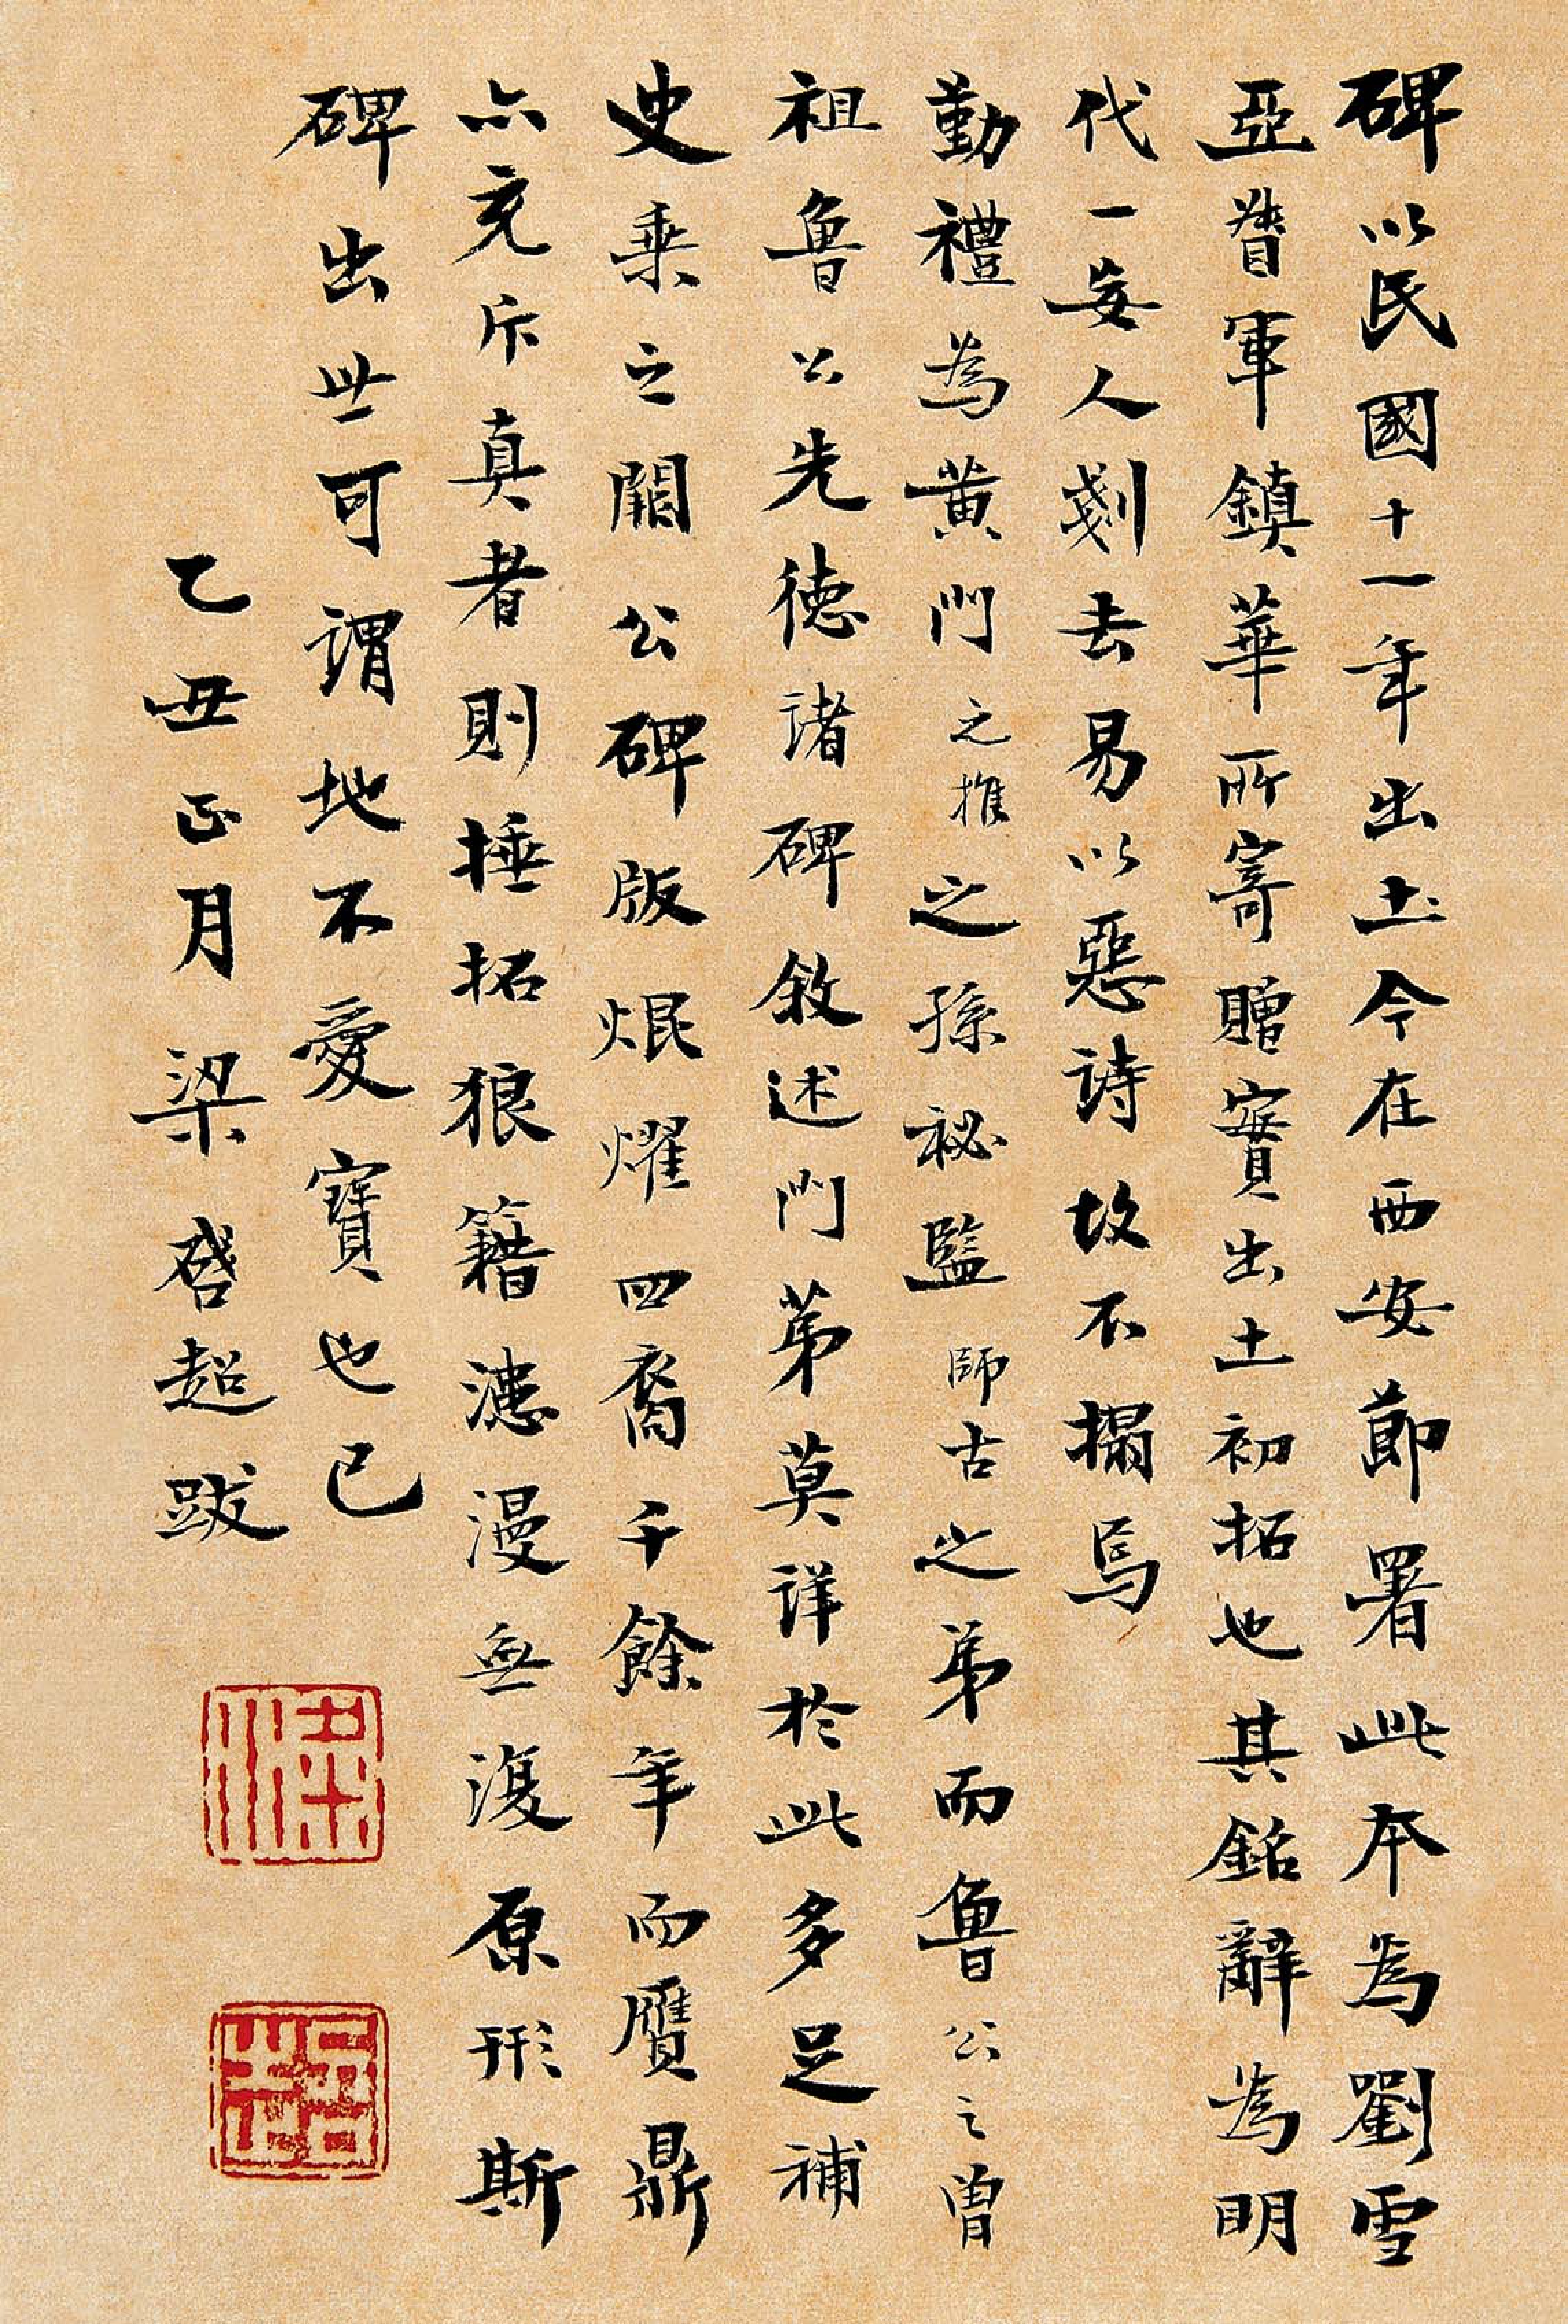 碑以民國十一年出土今在西安節署此本為劉雪
亞督軍鎮華所寄贈實出土初拓也其銘辭為明
代一妄人剗去易以惡詩故不搨焉
勤禮為黃門之推之孫祕監師古之弟而魯公之曾
祖魯公先德諸碑敘述門弟莫詳於此多足補
史乘之闕公碑版焜燿四裔千餘年而贋鼎
亦充斥真者則捶拓狼籍漶漫無復原形斯
碑出世可謂地不愛寶也已
乙丑正月梁啓超跋
梁
啓超